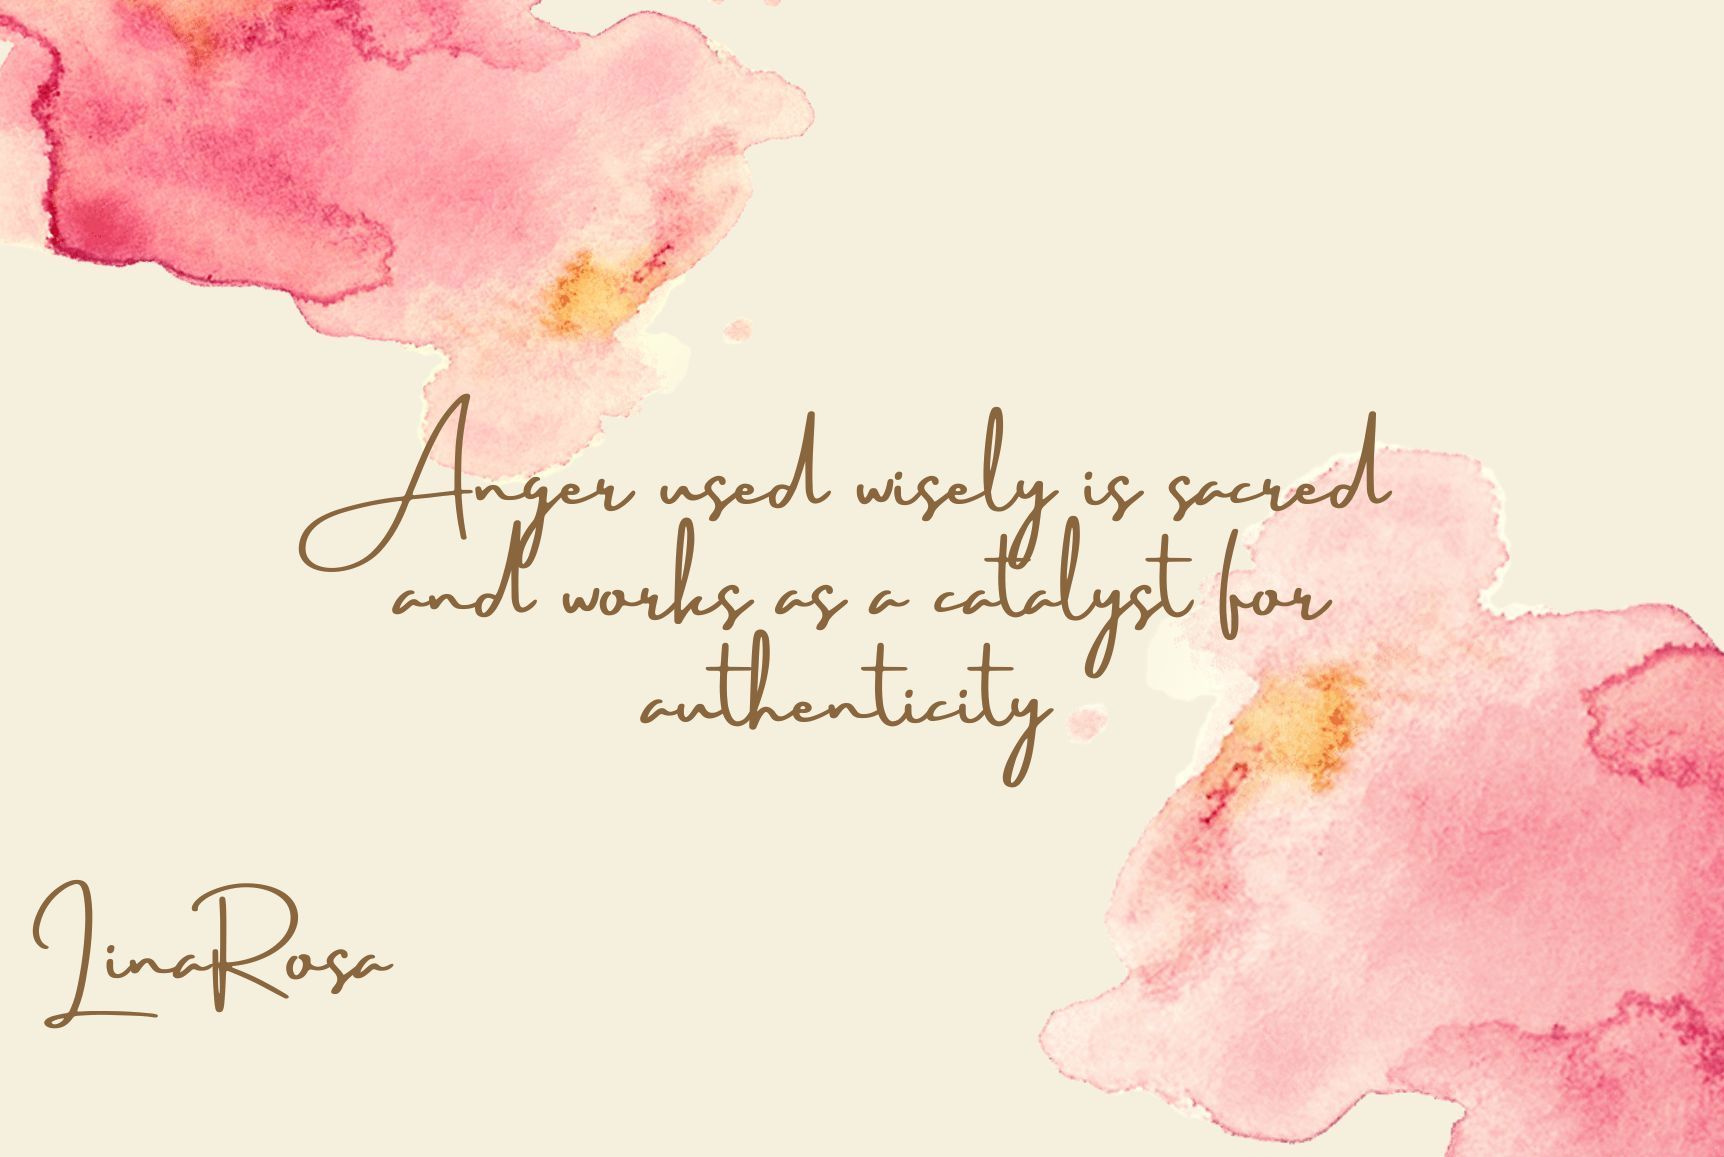 Anger used wisely is sacred
and works as a catalyst for
authenticity
LinaRosa